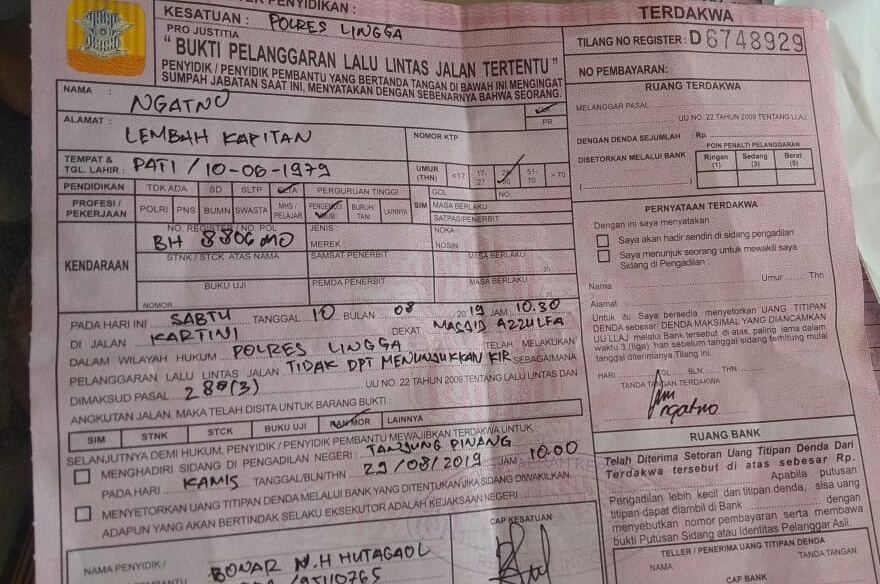 PENYIDIKAN :
KESATUAN : POLRES LINGGA
PRO JUSTITIA
" BUKTI PELANGGARAN LALU LINTAS JALAN TERTENTU "
PENYIDIK / PENYIDIK PEMBANTU YANG BERTANDA TANGAN DI BAWAH INI MENGINGAT
SUMPAH JABATAN SAAT INI, MENYATAKAN DENGAN SEBENARNYA BAHWA SEORANG.
NAMA : NGATNO
PR
ALAMAT : LEMBAH KAPITAN
NOMOR KTP
TEMPAT &
TGL. LAHIR : PATI / 10-06-1979
UMUR (THN) <17 17-27 28-50 51-70 > 70
PENDIDIKAN TDK ADA SD SLTP SLTA PERGURUAN TINGGI
PROFESI / PEKERJAAN POLRI PNS BUMN SWASTA MHS / PELAJAR PENGEMUDI UMUM BURUH/ TANI LAINNYA
SIM GOL NO
MASA BERLAKU
SATPAS/PENERBIT
KENDARAAN
NO. REGISTER / NO. POL
BH 8806 MO
JENIS :
MEREK :
NOKA :
NOSIN
STNK / STCK ATAS NAMA SAMSAT PENERBIT MASA BERLAKU
20
BUKU UJI PEMDA PENERBIT MASA BERLAKU
20
NOMOR
PADA HARI INI SABTU TANGGAL 10 BULAN 08 2019 JAM 10.30
DI JALAN KARTINI DEKAT MASJID AZZULFA
DALAM WILAYAH HUKUM POLRES LINGGA TELAH MELAKUKAN
PELANGGARAN LALU LINTAS JALAN TIDAK DPT MENUNJUKKAN KIR SEBAGAIMANA
DIMAKSUD PASAL 288(3) UU NO. 22 TAHUN 2009 TENTANG LALU LINTAS DAN
ANGKUTAN JALAN, MAKA TELAH DISITA UNTUK BARANG BUKTI :
SIM STNK STCK BUKU UJI RANMOR LAINNYA
SELANJUTNYA DEMI HUKUM, PENYIDIK / PENYIDIK PEMBANTU MEWAJIBKAN TERDAKWA UNTUK :
MENGHADIRI SIDANG DI PENGADILAN NEGERI : TANJUNG PINANG
PADA HARI KAMIS TANGGAL/BLN/THN 29/08/2019 JAM 10.00
MENYETORKAN UANG TITIPAN DENDA MELALUI BANK YANG DITENTUKAN JIKA SIDANG DIWAKILKAN.
ADAPUN YANG AKAN BERTINDAK SELAKU EKSEKUTOR ADALAH KEJAKSAAN NEGERI
CAP KESATUAN
NAMA PENYIDIK / BONAR N.H HUTAGAOL
95110765
TERDAKWA
TILANG NO REGISTER : D6748929
NO PEMBAYARAN:
RUANG TERDAKWA
MELANGGAR PASAL
UU NO. 22 TAHUN 2009 TENTANG LLAJ
DENGAN DENDA SEJUMLAH : Rp.
DISETORKAN MELALUI BANK
POIN PENALTI PELANGGARAN
Ringan (1) Sedang (3) Berat (5)
PERNYATAAN TERDAKWA
Dengan ini saya menyatakan :
Saya akan hadir sendiri di sidang pengadilan
Saya menunjuk seorang untuk mewakili saya
Sidang di Pengadilan :
Nama Umur Thn
Alamat :
Untuk itu Saya bersedia menyetorkan UANG TITIPAN
DENDA sebesar, DENDA MAKSIMAL YANG DIANCAMKAN
UU LLAJ melalui Bank tersebut di atas, paling lama dalam
waktu 3 (tiga) hari sebelum tanggal sidang terhitung mulai
tanggal diterimanya Tilang ini.
HARI TGL BLN THN
TANDA TANGAN TERDAKWA
Ngatno
RUANG BANK
Telah Diterima Setoran Uang Titipan Denda Dari
Terdakwa tersebut di atas sebesar Rp.
Apabila putusan
Pengadilan lebih kecil dari titipan denda, sisa uang
titipan dapat diambil di Bank dengan
menyebutkan nomor pembayaran serta membawa
bukti Putusan Sidang atau Identitas Pelanggar Asli.
TELLER / PENERIMA UANG TITIPAN DENDA
NAMA TANDA TANGAN
CAP BANK